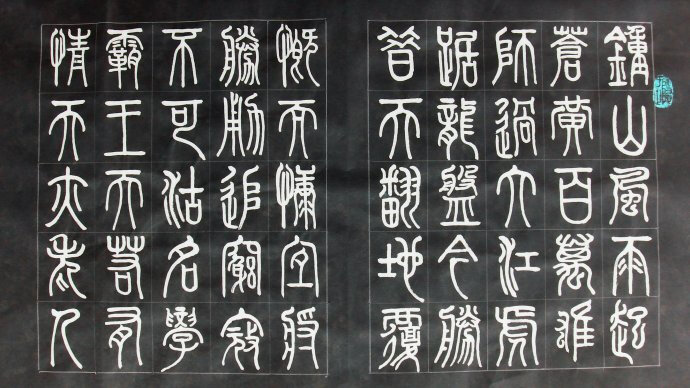 鍾山風雨起
蒼黃百萬雄
師過大江虎
踞龍盤今勝
昔天翻地覆
慨而慷宜將
勝勇追窮寇
不可沽名學
霸王天若有
情天亦老人